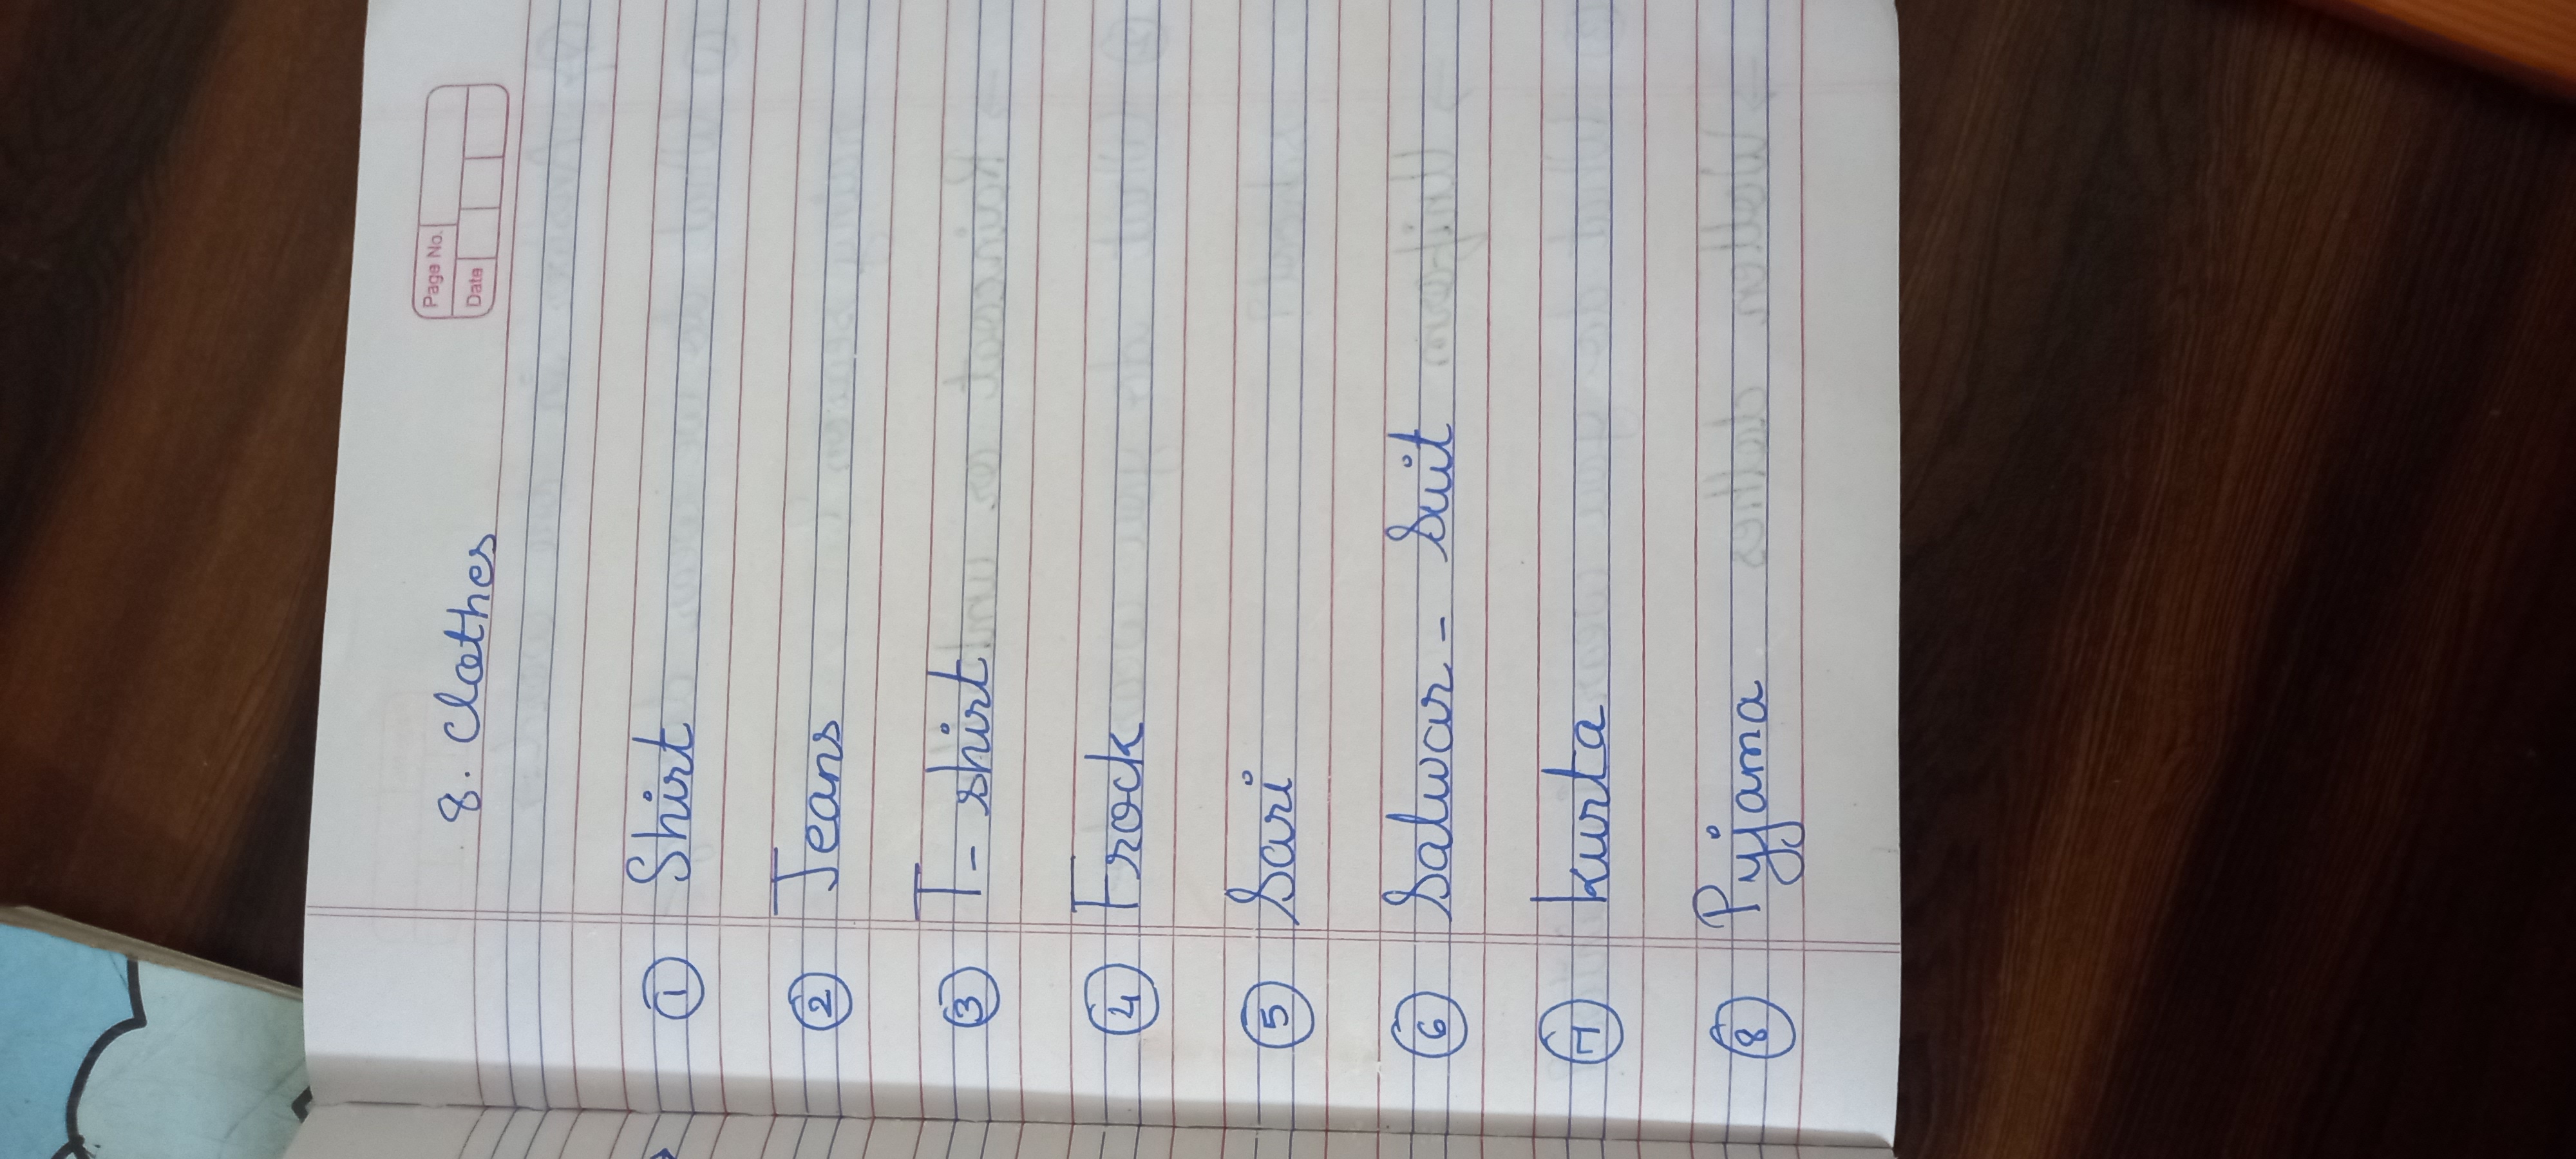 Page No.
Date
8. Clothes
① Shirt
② Jeans
③ T-shirt
④ Frock
⑤ Sari
⑥ Salwar-Suit
⑦ kurta
⑧ Pyjama